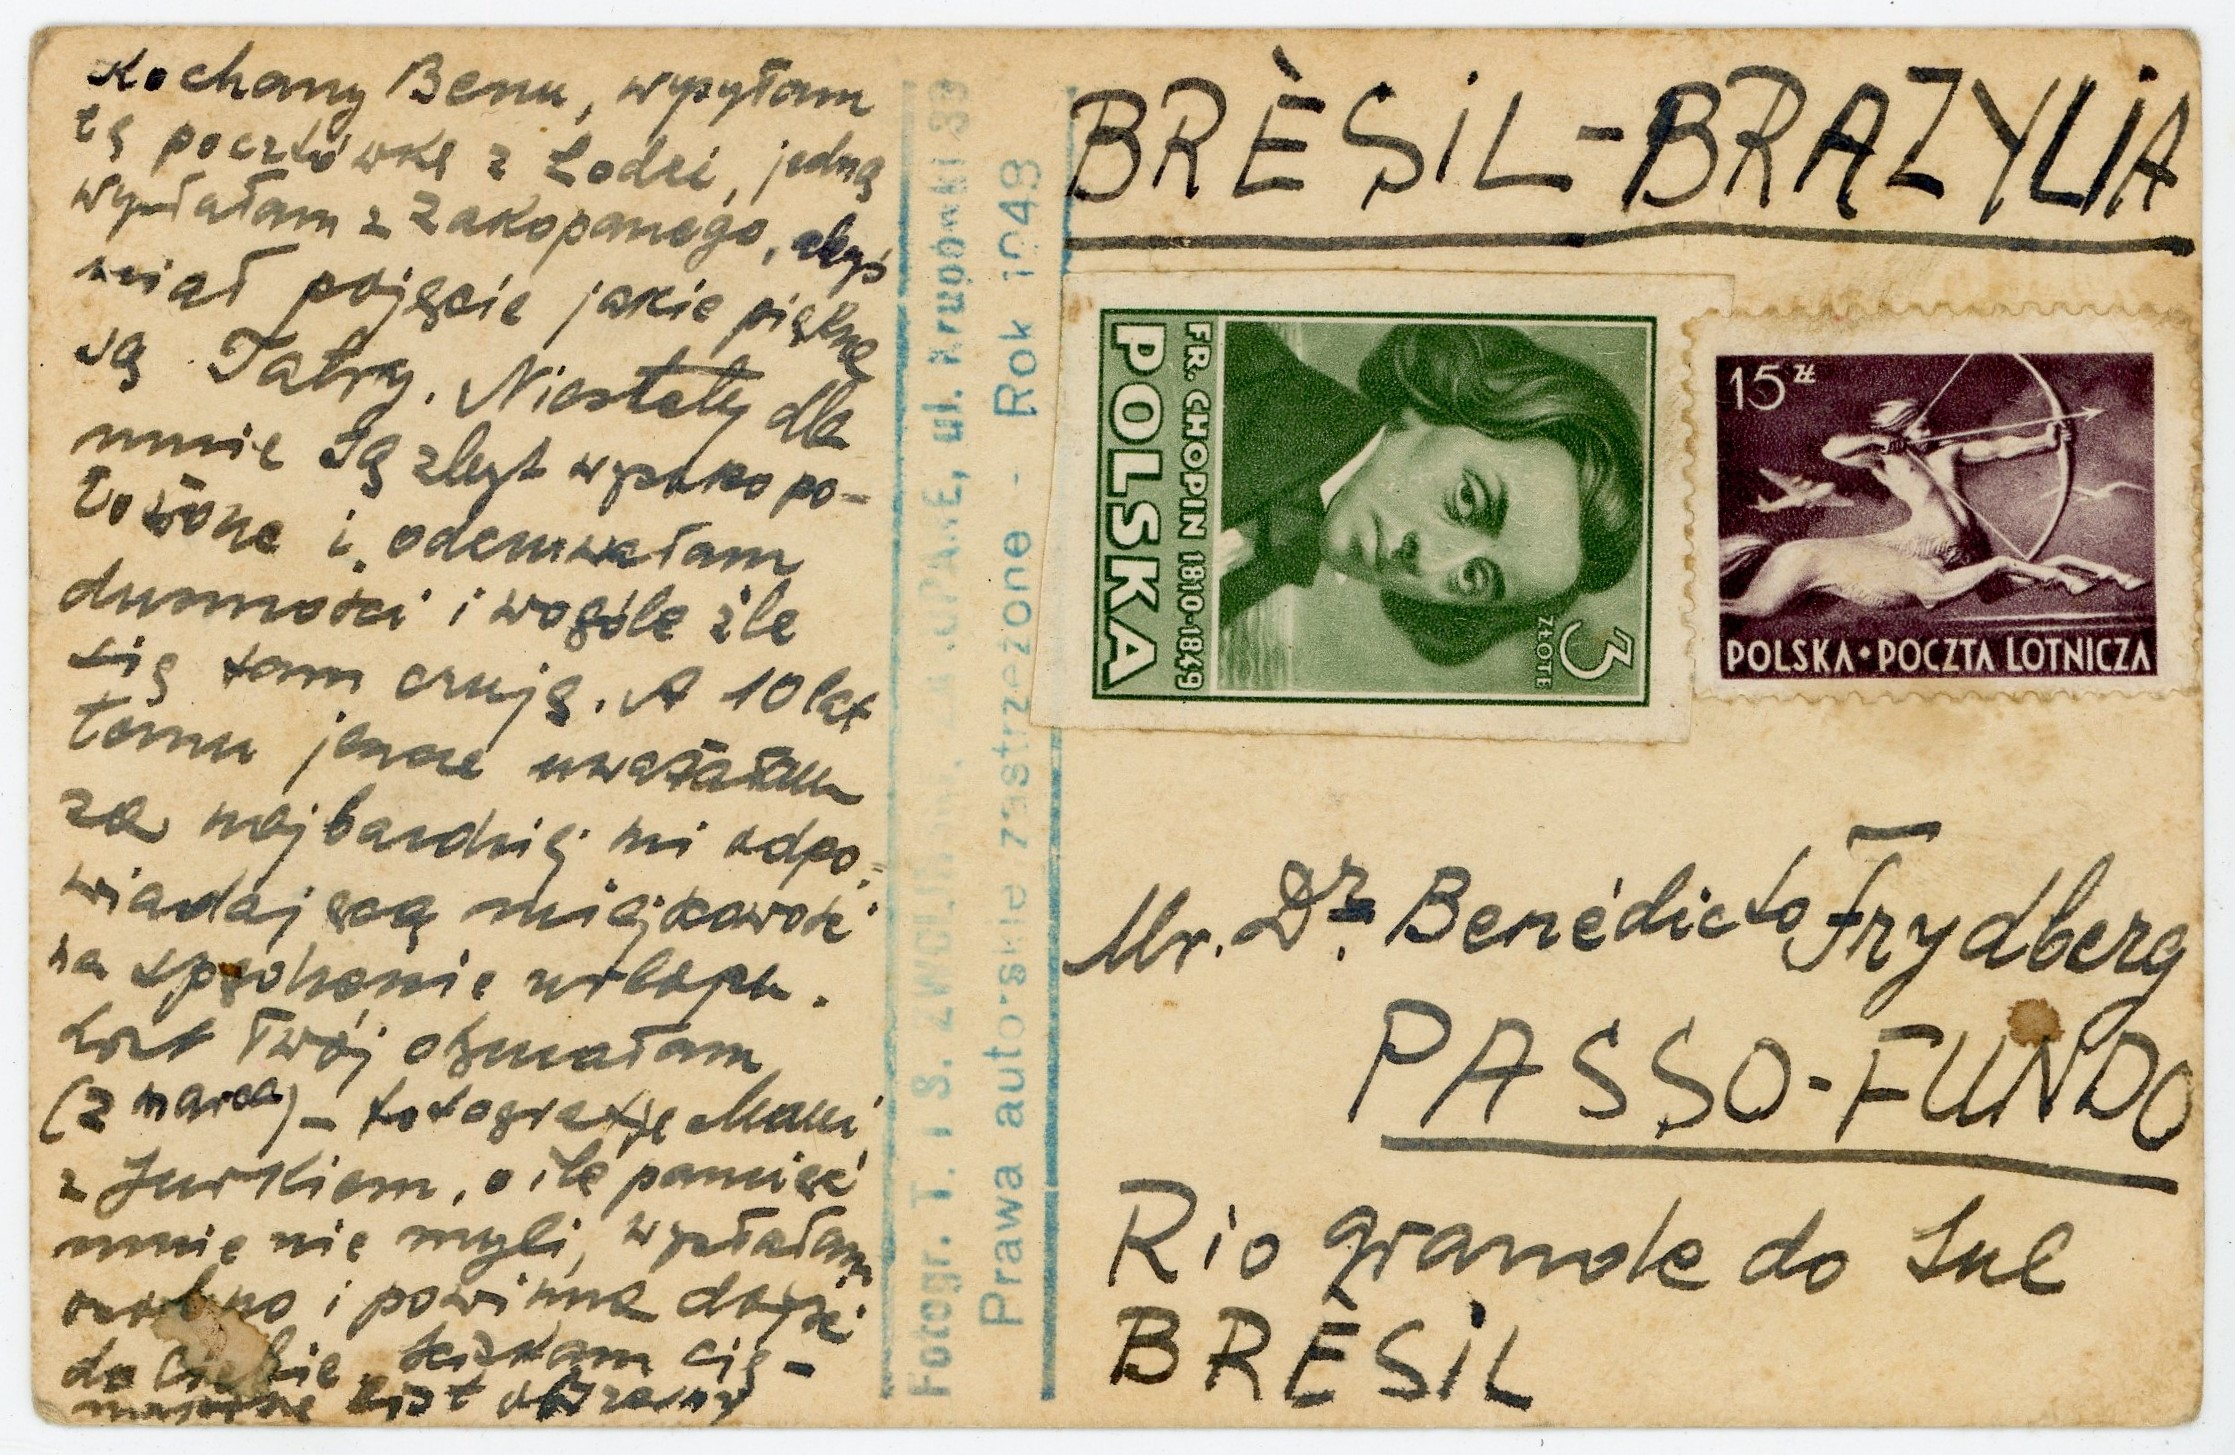 Kochany Benu, wysyłam
tę pocztówkę z Łodzi, jedną
wysłałam z Zakopanego, abyś
miał pojęcie jakie piękne
są Tatry. Niestety dla
mnie są zbyt wysoko po-
łożone i odczuwałam
duszności i wogóle źle
się tam czuję. A 10 lat
temu jeszcze uważałam
za najbardziej mi odpo-
wiadającą miejscowość
na spędzenie urlopu.
List Twój otrzymałam
(z marca) – fotografję Mami
z Jurkiem, o ile pamięć
mnie nie myli, wysłałam
osobno i powinna dojść
do Ciebie. Ściskam cię –
list
Fotogr. T. i S. ZWOLIŃSKI, ZAKOPANE, ul. Krupówki 33
Prawa autorskie zastrzeżone - Rok 1948
BRÈSIL-BRAZYLIA
FR. CHOPIN 1810-1849
POLSKA
3 ZŁOTE
15 ZŁ
POLSKA • POCZTA LOTNICZA
Mr. Dr. Benédicto Frydberg
PASSO-FUNDO
Rio grande do Sul
BRÈSIL